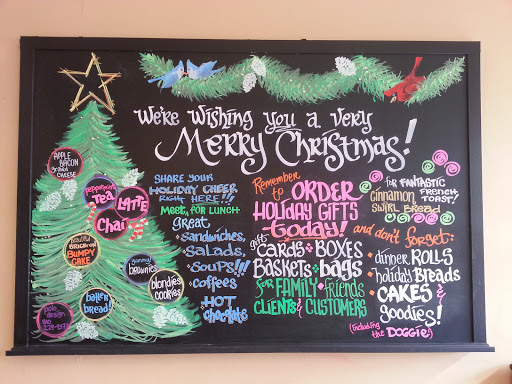 We're Wishing You a very
Merry Christmas!
APPLE
BACON
CHEESE
peppermint
Tea
LATTE
Chai
beautiful
BUMPY
CAKE
yummy!
brownies
blondies
cookies
baller
bread
polo
design
SHARE YOUR
HOLIDAY CHEER
RIGHT HERE!!!
MEET FOR LUNCH
great
• sandwiches,
• Salads,
• Soups!!!
• coffees
HOT
chocolate
Remember
to ORDER
HOLIDAY GIFTS
today!
gift
CARDS • BOXES
BASKETS • bags
for FAMILY • friends
CLIENTS & CUSTOMERS
for FANTASTIC
FRENCH
TOAST!
cinnamon
SWIRL BREAD
and don't forget:
• dinner ROLLS
• holiday BREADS
• CAKES &
goodies!
(including
the DOGGIE)